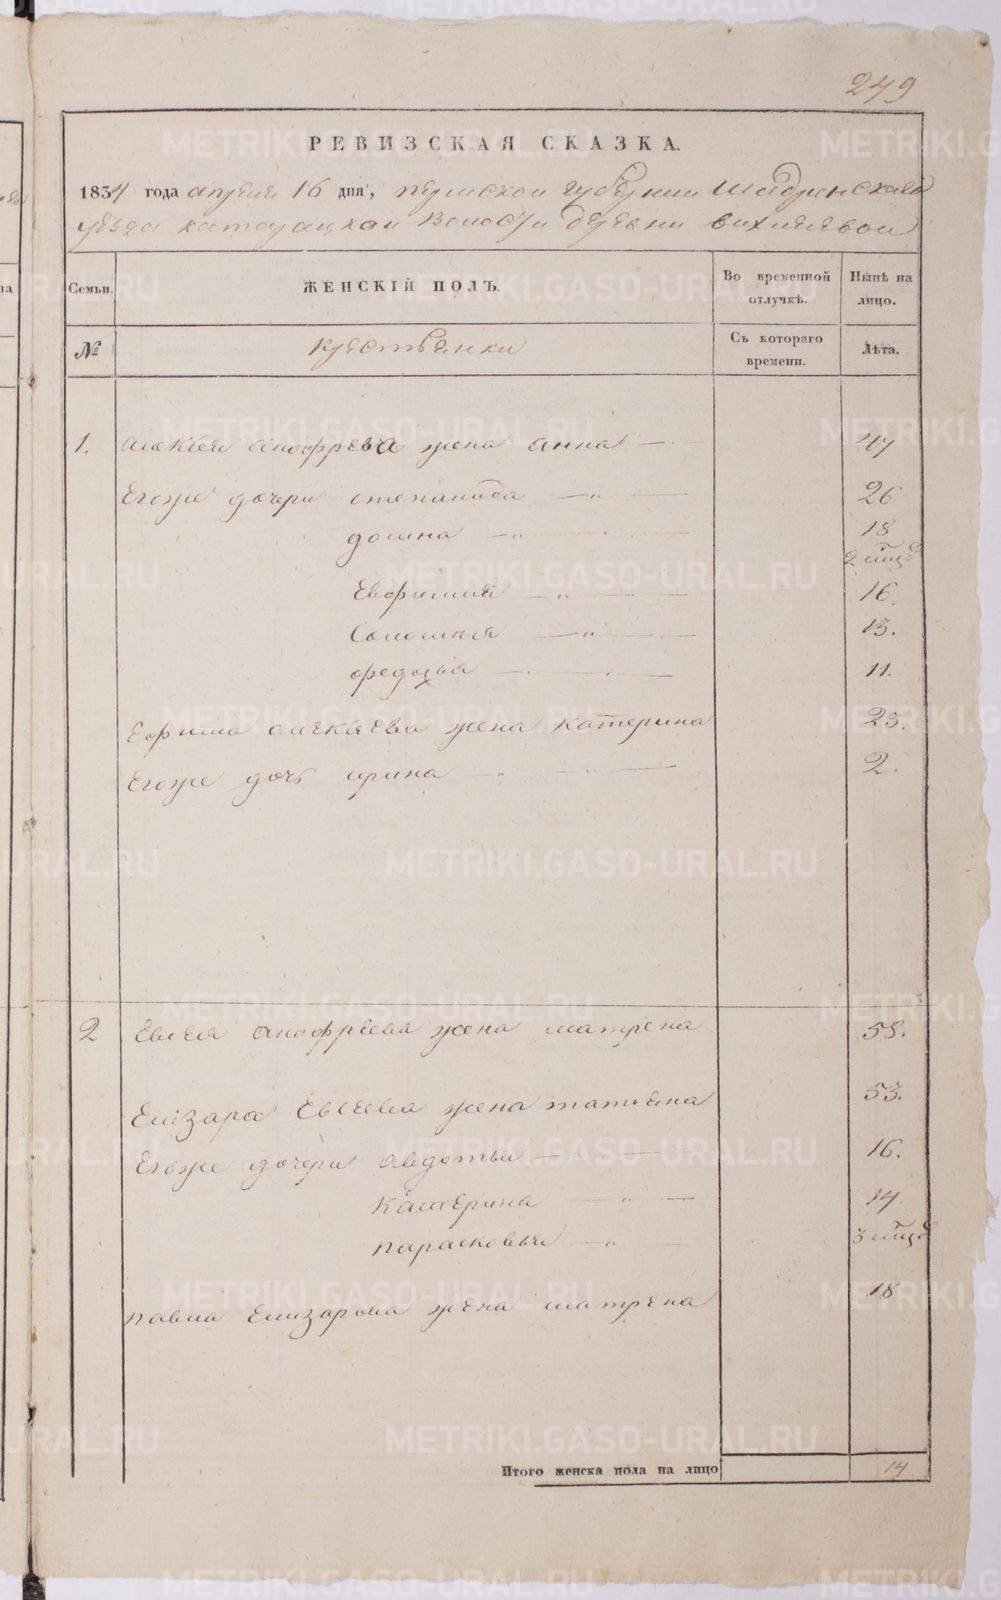 249
РЕВИЗСКАЯ СКАЗКА.
1834 года апреля 16 дня, пермской губернии Шадринскаго
уезда катоуацкой Волости деревни вихляевой
Семьи. ЖЕНСКІЙ ПОЛЪ. Во временной отлучкѣ. Нынѣ на лицо.
№ крестьянки Съ котораго времени. Лѣта.
1. алекѣя анофрева жена анна 47
Егоже дочери степанида 26
домна 18
2 мѣцѣ
Евфимия 16.
Соломия 13.
федосья 11.
Еофима алекѣева жена катерина 23.
Егоже дочь ирина 2.
2 Евсея анофриева жена матрена 58.
Елизара Евсеева жена татьяна 53.
Егоже дочери авдотья 16.
Катерина 14
парасковья 3 мѣцѣ
павла Елизарова жена матрена 18
Итого женска пола на лицо 14
METRIKI.GASO-URAL.RU